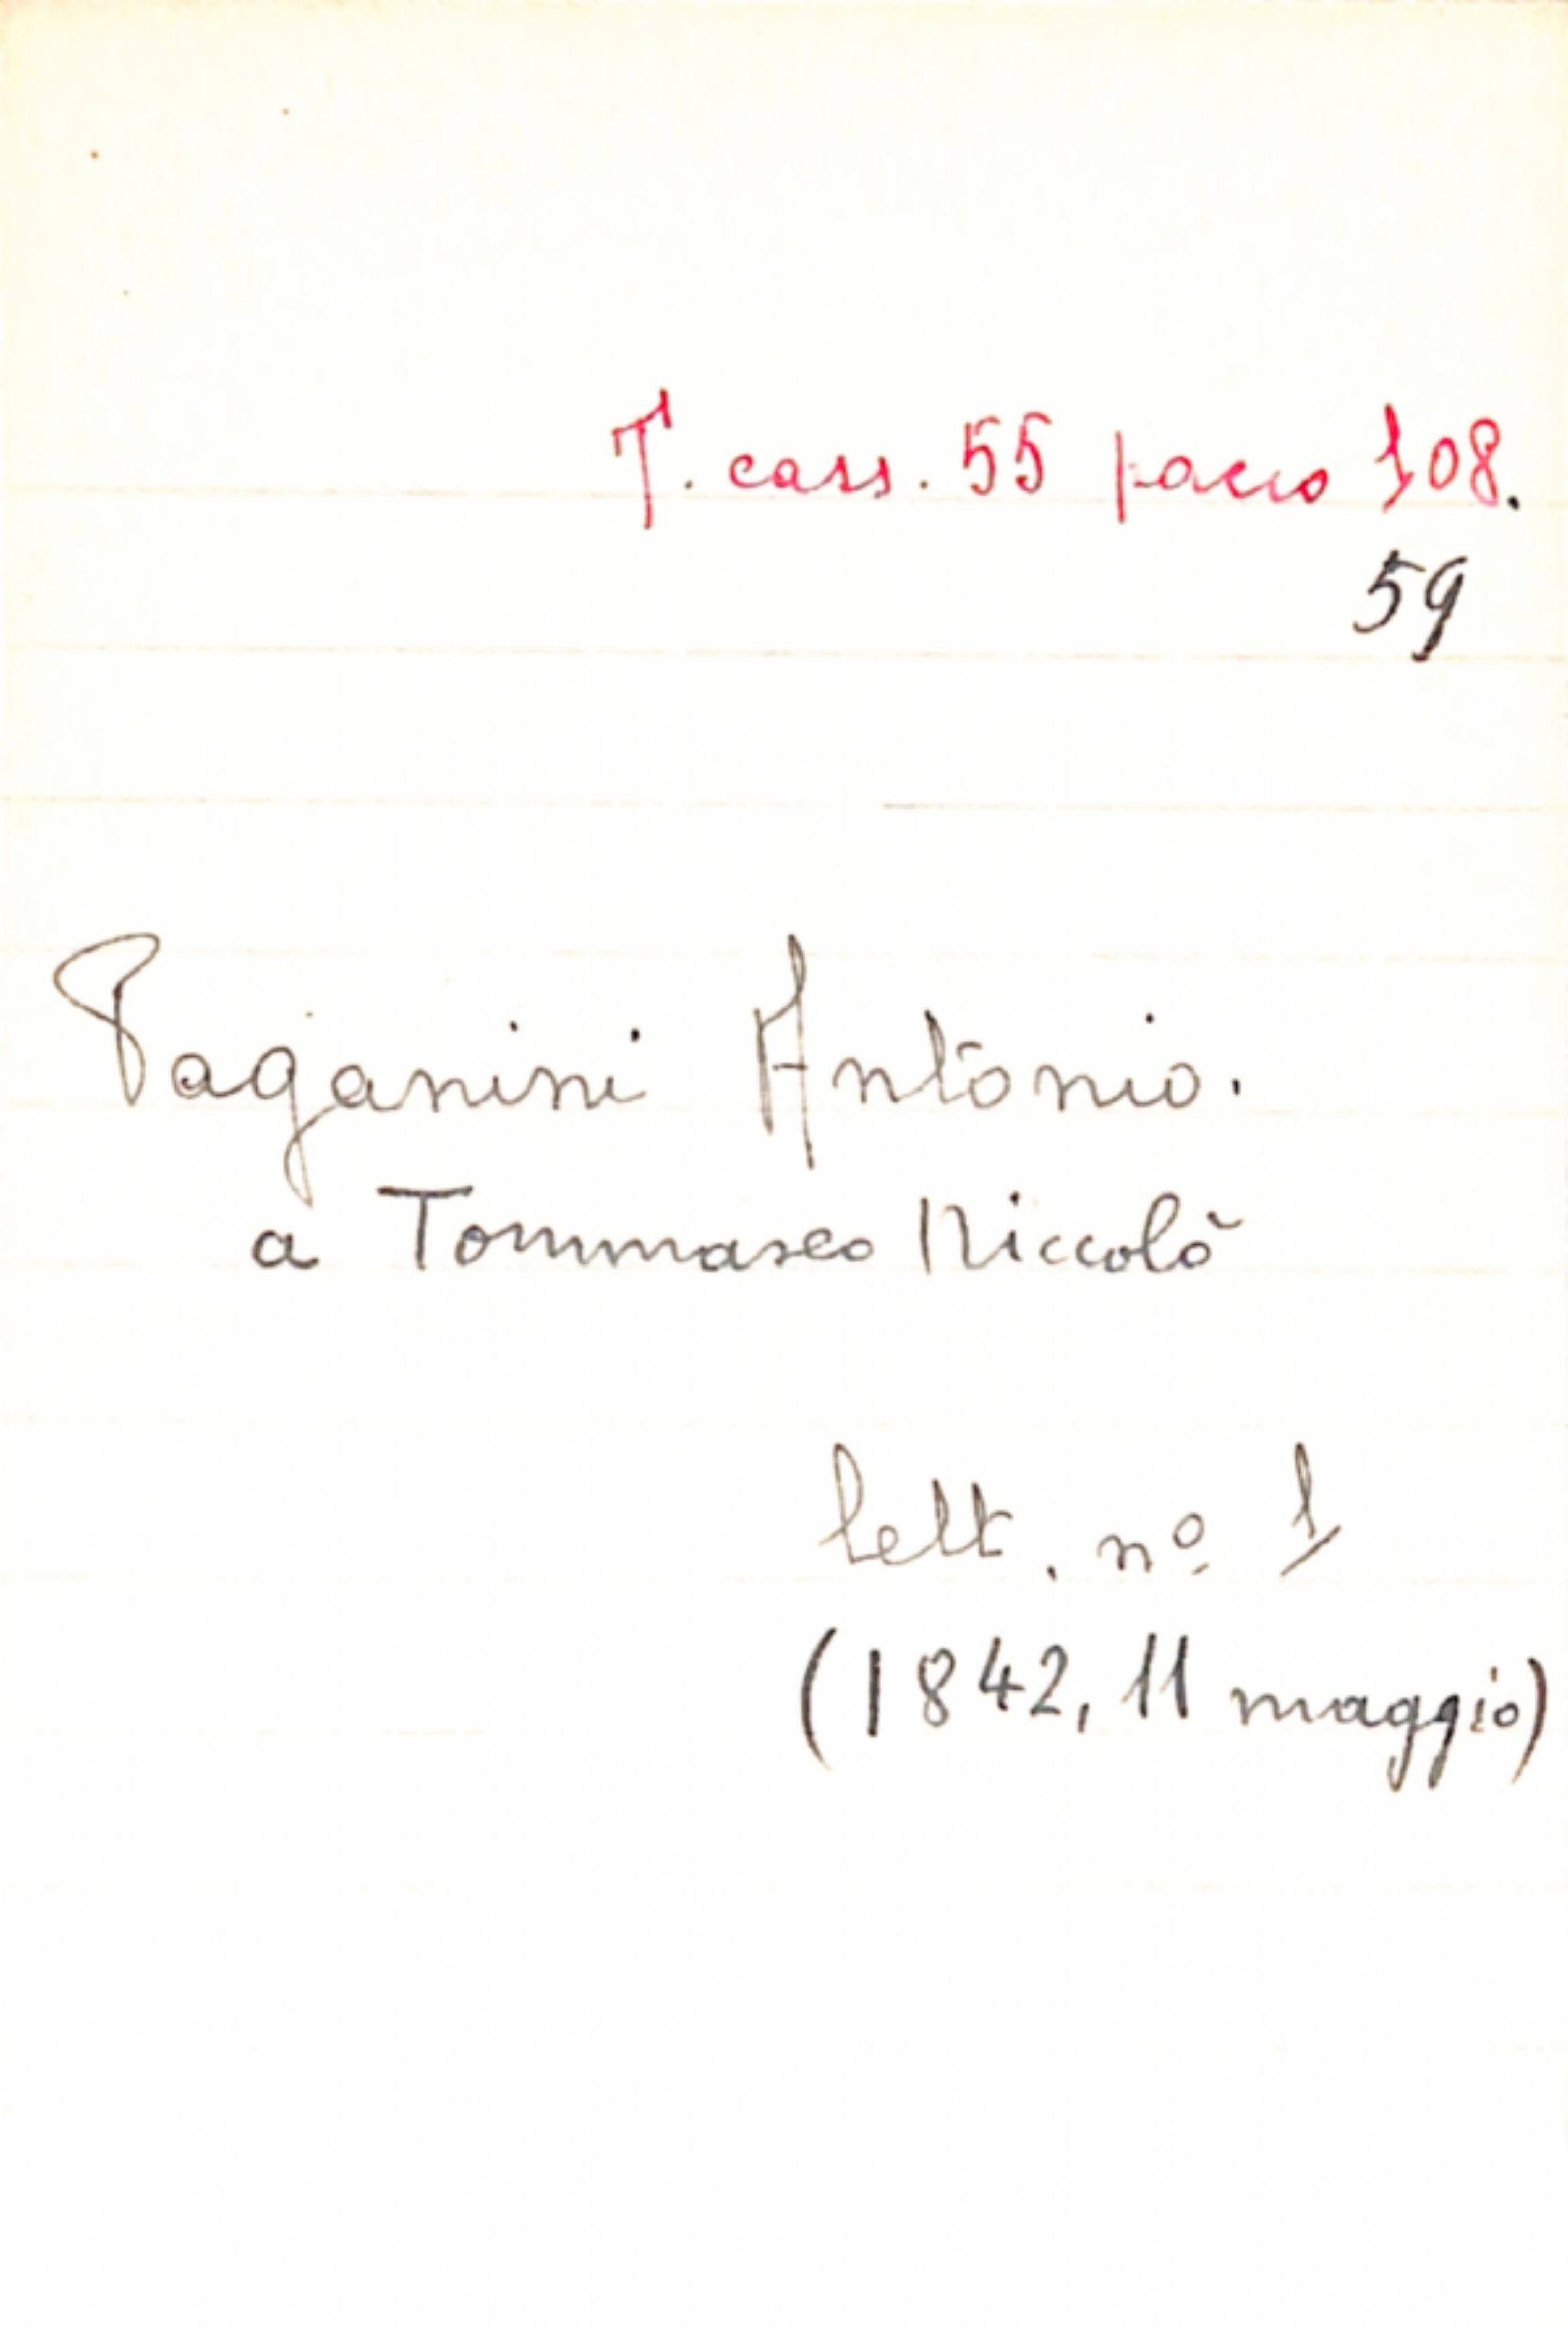 T. cass. 55 pacco 108.
59
Paganini Antonio.
a Tommaseo Niccolò
lett. nº 1
(1842, 11 maggio)